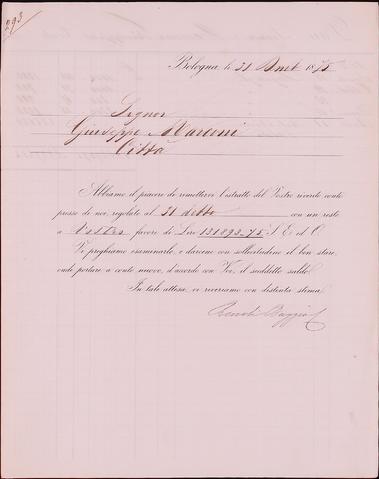 293
Bologna, li 31 1875
Signor
Giuseppe Marconi
Città
Abbiamo il piacere di rimettervi l'estratto del Vostro ricordo conto
presso di noi, regolato al 31 detto con un resto
a Vostro favore di Lire 131893.75 S. E. ed O.
Vi preghiamo esaminarlo, e darcene con sollecitudine il ben stare,
onde portare a conto nuovo, d'accordo con Voi, il suddetto saldo.
In tale attesa, vi riveriamo con distinta stima